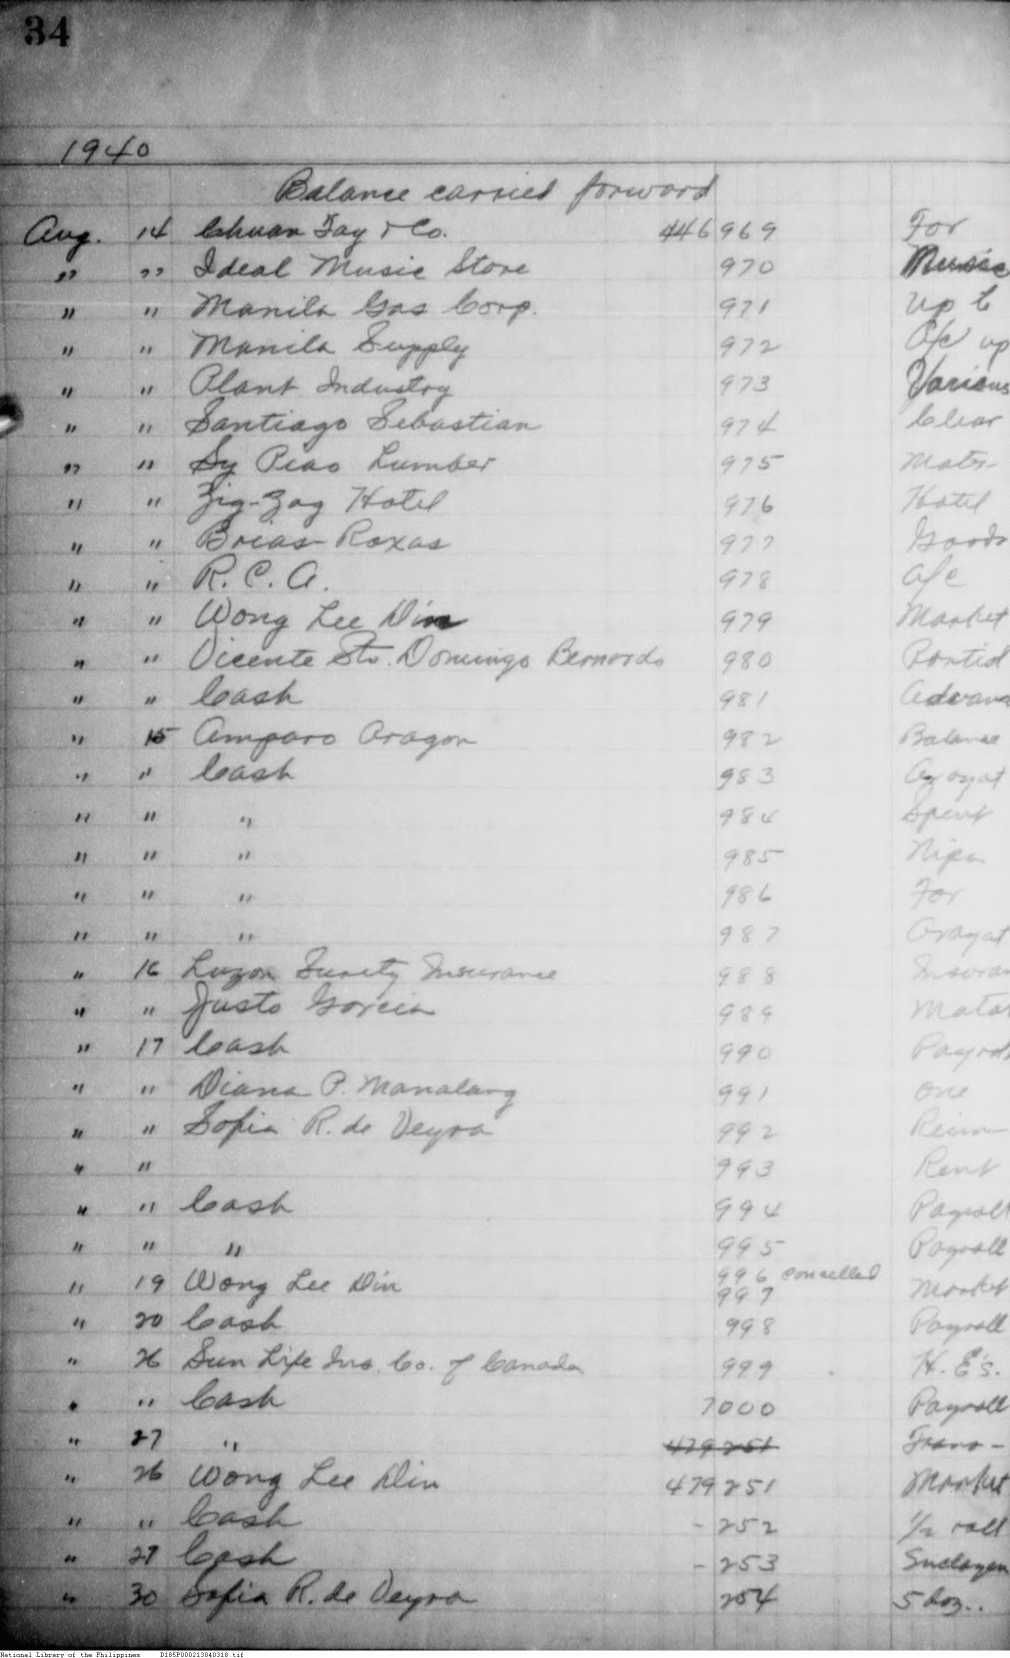 34
1940
Balance carried forward
Aug. 14 Chuan Fay & Co. 446 969 For
" " Ideal Music Store 970 Music
" " Manila Gas Corp. 971 up to
" " Manila Supply 972 A/c up
" " Plant Industry 973 Various
" " Santiago Sebastian 974 Clear
" " Sy Piao Lumber 975 Mater-
" " Zig-Zag Hotel 976 Hotel
" " Brias-Roxas 977 Goods
" " R. C. A. 978 a/c
" " Wong Lee Din 979 Market
" " Vicente Sto. Domingo Bernardo 980 Partial
" " Cash 981 Advanc
" 15 Amparo Aragon 982 Balance
" " Cash 983 Arayat
" " " 984 Spent
" " " 985 Nipa
" " " 986 For
" " " 987 Arayat
" 16 Luzon Surety Insurance 988 Insuran
" " Justo Garcia 989 Mater
" 17 Cash 990 Payroll
" " Diana P. Manalang 991 one
" " Sofia R. de Veyra 992 Reim-
" " 993 Rent
" " Cash 994 Payroll
" " " 995 Payroll
996 cancelled
" 19 Wong Lee Din 997 Market
" 20 Cash 998 Payroll
" 26 Sun Life Ins. Co. of Canada 999 H. E's.
" " Cash 7000 Payroll
" 27 " 479 251 Trans-
" 26 Wong Lee Din 479 251 Market
" " Cash - 252 1/2 roll
" 27 Cash - 253
" 30 Sofia R. de Veyra 254 5 doz..
National Library of the Philippines D185P000213840318.tif